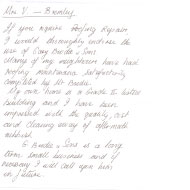 Mrs V. — Bromley
If you require roofing repairs
I would thoroughly endorse the
use of Day Burke & Sons
Many of my neighbours have had
roofing maintenance satisfactorily
completed by Mr Burke.
My own home is a Grade II listed
building and I have been
impressed with the quality, cost
and clearing away of aftermath
rubbish.
& Sons is a long
term small business and if
necessary I will call upon him
in future